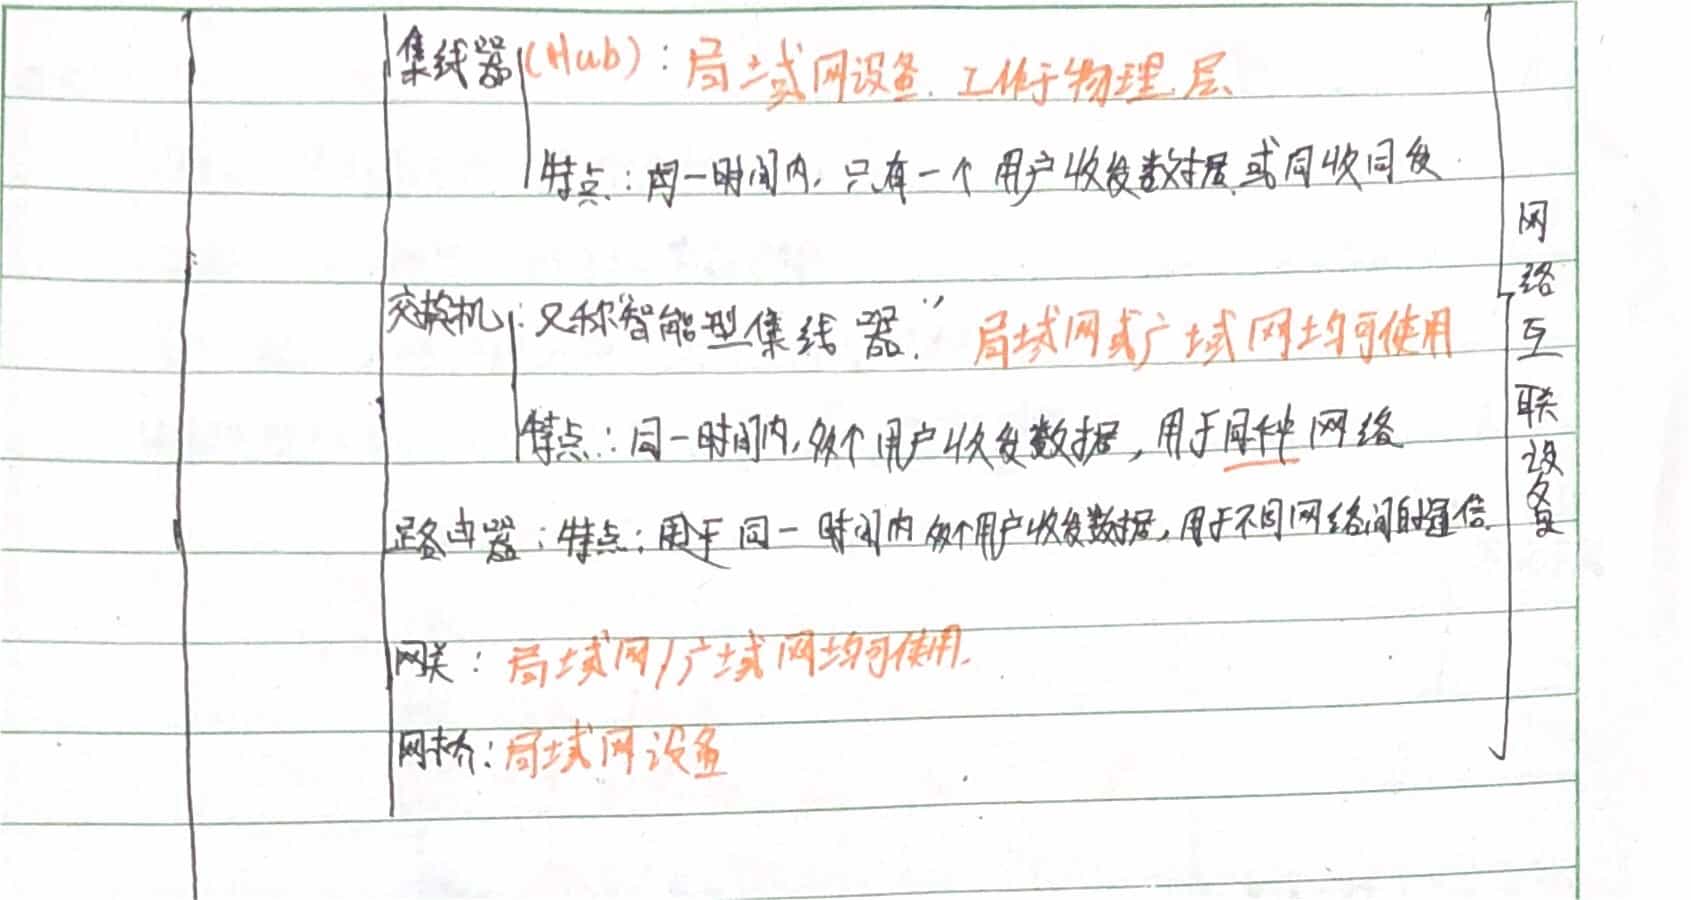 集线器(Hub)：局域网设备. 工作于物理层.
特点：同一时间内, 只有一个用户收发数据.或同收同发.
交换机：又称"智能型集线器." 局域网或广域网均可使用
特点：同一时间内,多个用户收发数据, 用于同种网络
路由器：特点：用于同一时间内多个用户收发数据,用于不同网络间的通信.
网关：局域网/广域网均可使用.
网桥：局域网设备
网络互联设备